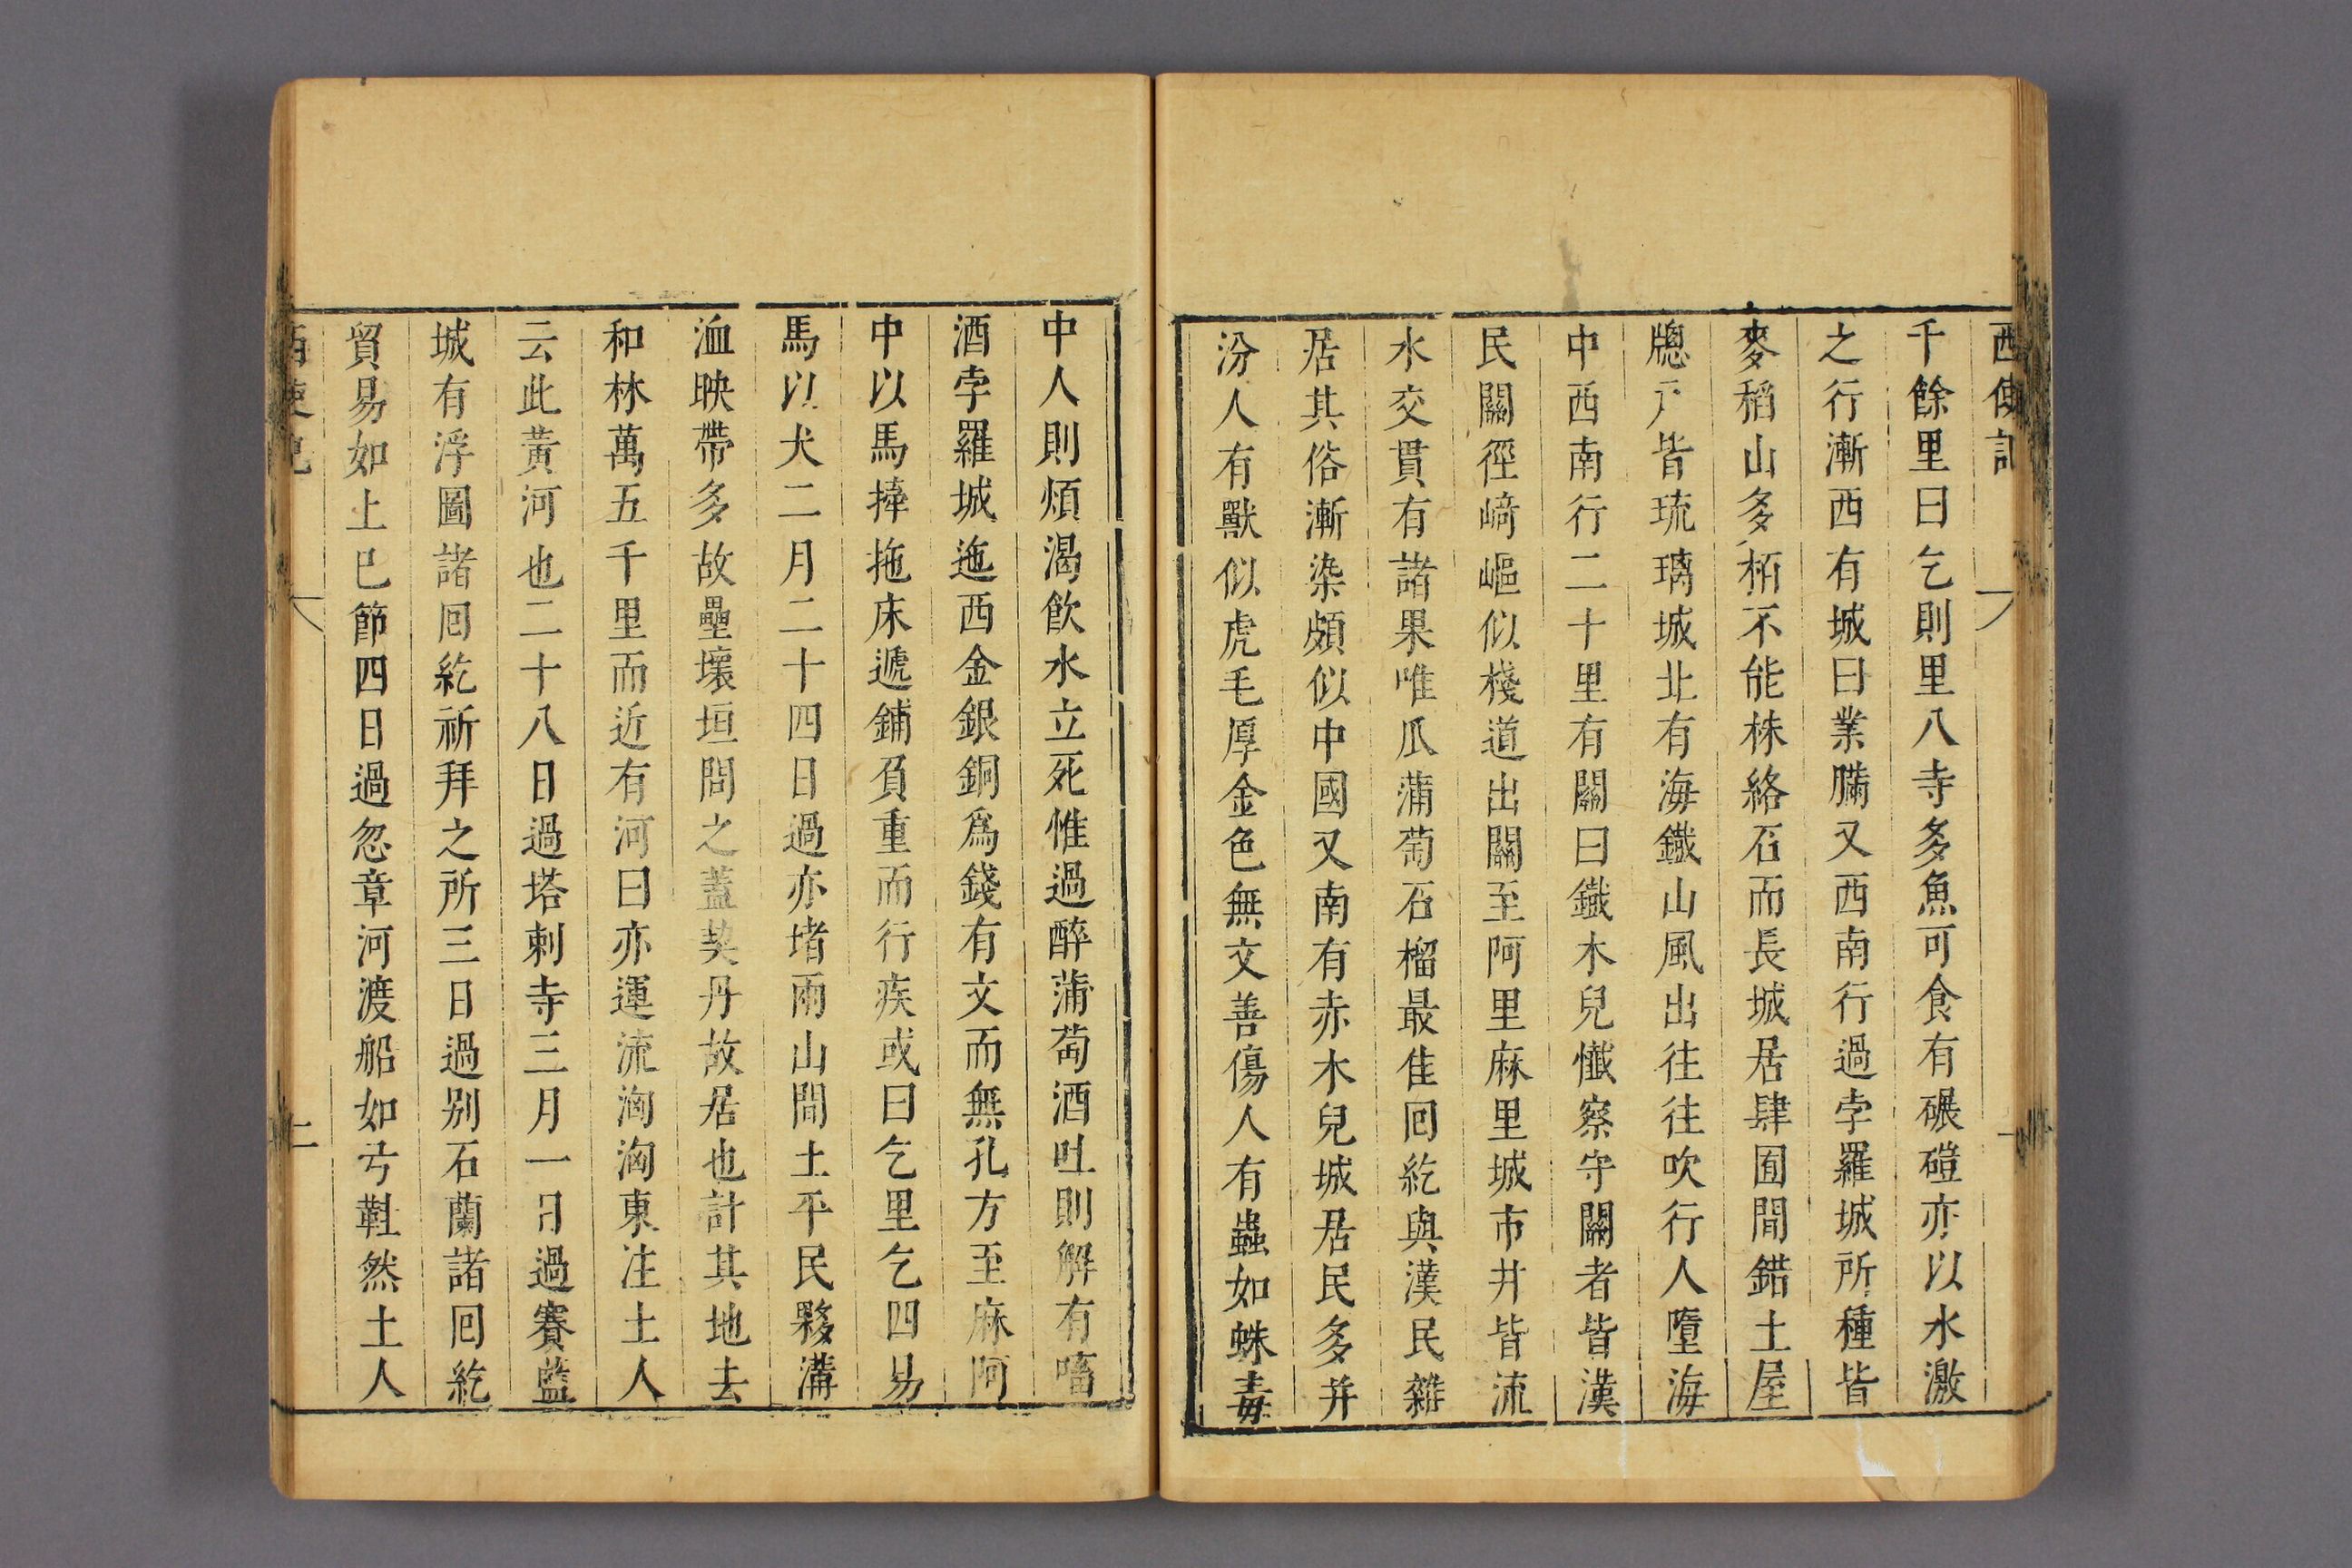 西使記 一
千餘里曰乞則里八寺多魚可食有碾磑亦以水激
之行漸西有城曰業瞞又西南行過孛羅城所種皆
麥稻山多栢不能株絡石而長城居肆囿間錯土屋
牕戸皆琉璃城北有海鐵山風出往往吹行人墮海
中西南行二十里有關曰鐵木兒懺察守關者皆漢
民關徑崎嶇似棧道出關至阿里麻里城市井皆流
水交貫有諸果唯瓜蒲萄石榴最佳回紇與漢民雜
居其俗漸染頗似中國又南有赤木兒城居民多并
汾人有獸似虎毛厚金色無文善傷人有蟲如蛛毒
中人則煩渴飲水立死惟過醉蒲萄酒吐則解有㗜
酒孛羅城迤西金銀銅爲錢有文而無孔方至麻阿
中以馬捧拖床遞鋪負重而行疾或曰乞里乞四易
馬以犬二月二十四日過亦堵兩山間土平民夥溝
洫映帶多故壘壞垣問之蓋契丹故居也計其地去
和林萬五千里而近有河曰亦運流洶洶東注土人
云此黃河也二十八日過塔剌寺三月一日過賽藍
城有浮圖諸囘紇祈拜之所三日過別石蘭諸囘紇
貿易如上巳節四日過忽章河渡船如弓鞋然土人
西使記 二